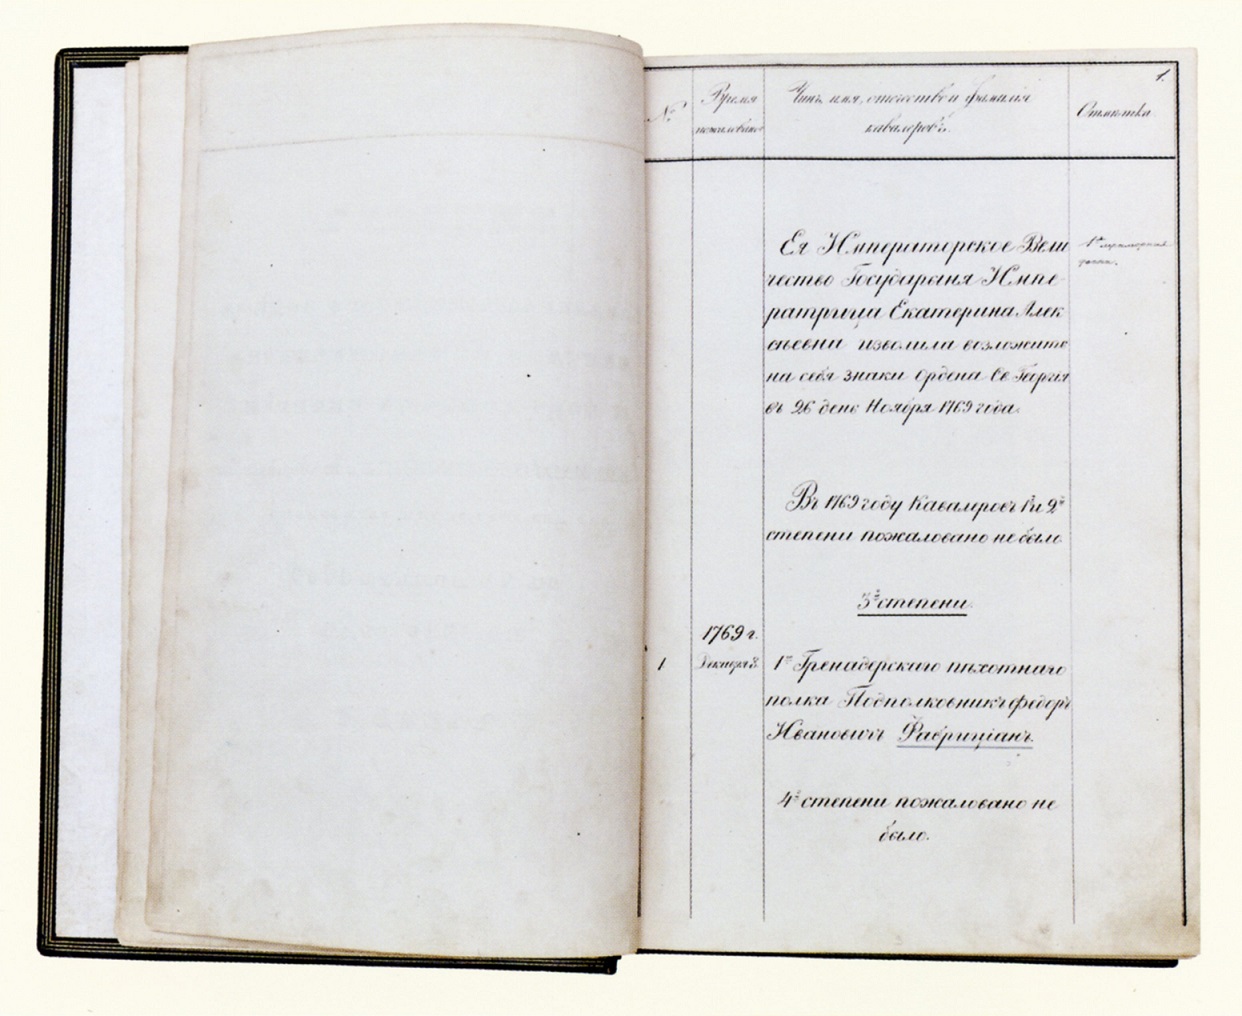 1.
№
Время
пожалованія
Чинъ, имя, отчество и фамилія
кавалеровъ.
Отмѣтка.
Ея Императорское Вели
чество Государыня Импе
ратрица Екатерина Алек
сѣевна изволила возложить
на себя знаки Ордена Св Георгія
въ 26 день Ноября 1769 года.
1ая мраморная
доска.
Въ 1769 году Кавалеровъ 1й и 2й
степени пожаловано не было
3й степени.
1769 г.
1 Декабря 8. 1го Гренадерскаго пѣхотнаго
полка Подполковникъ Ѳедоръ
Ивановичъ Фабриціанъ.
4й степени пожаловано не
было.